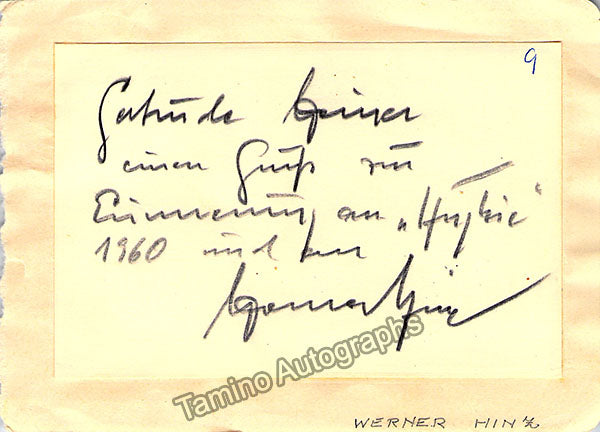 9
Gertrude
einen Gruß zur
Erinnerung an „
1960 und an
Werner Hinz
Tamino Autographs
WERNER HINZ